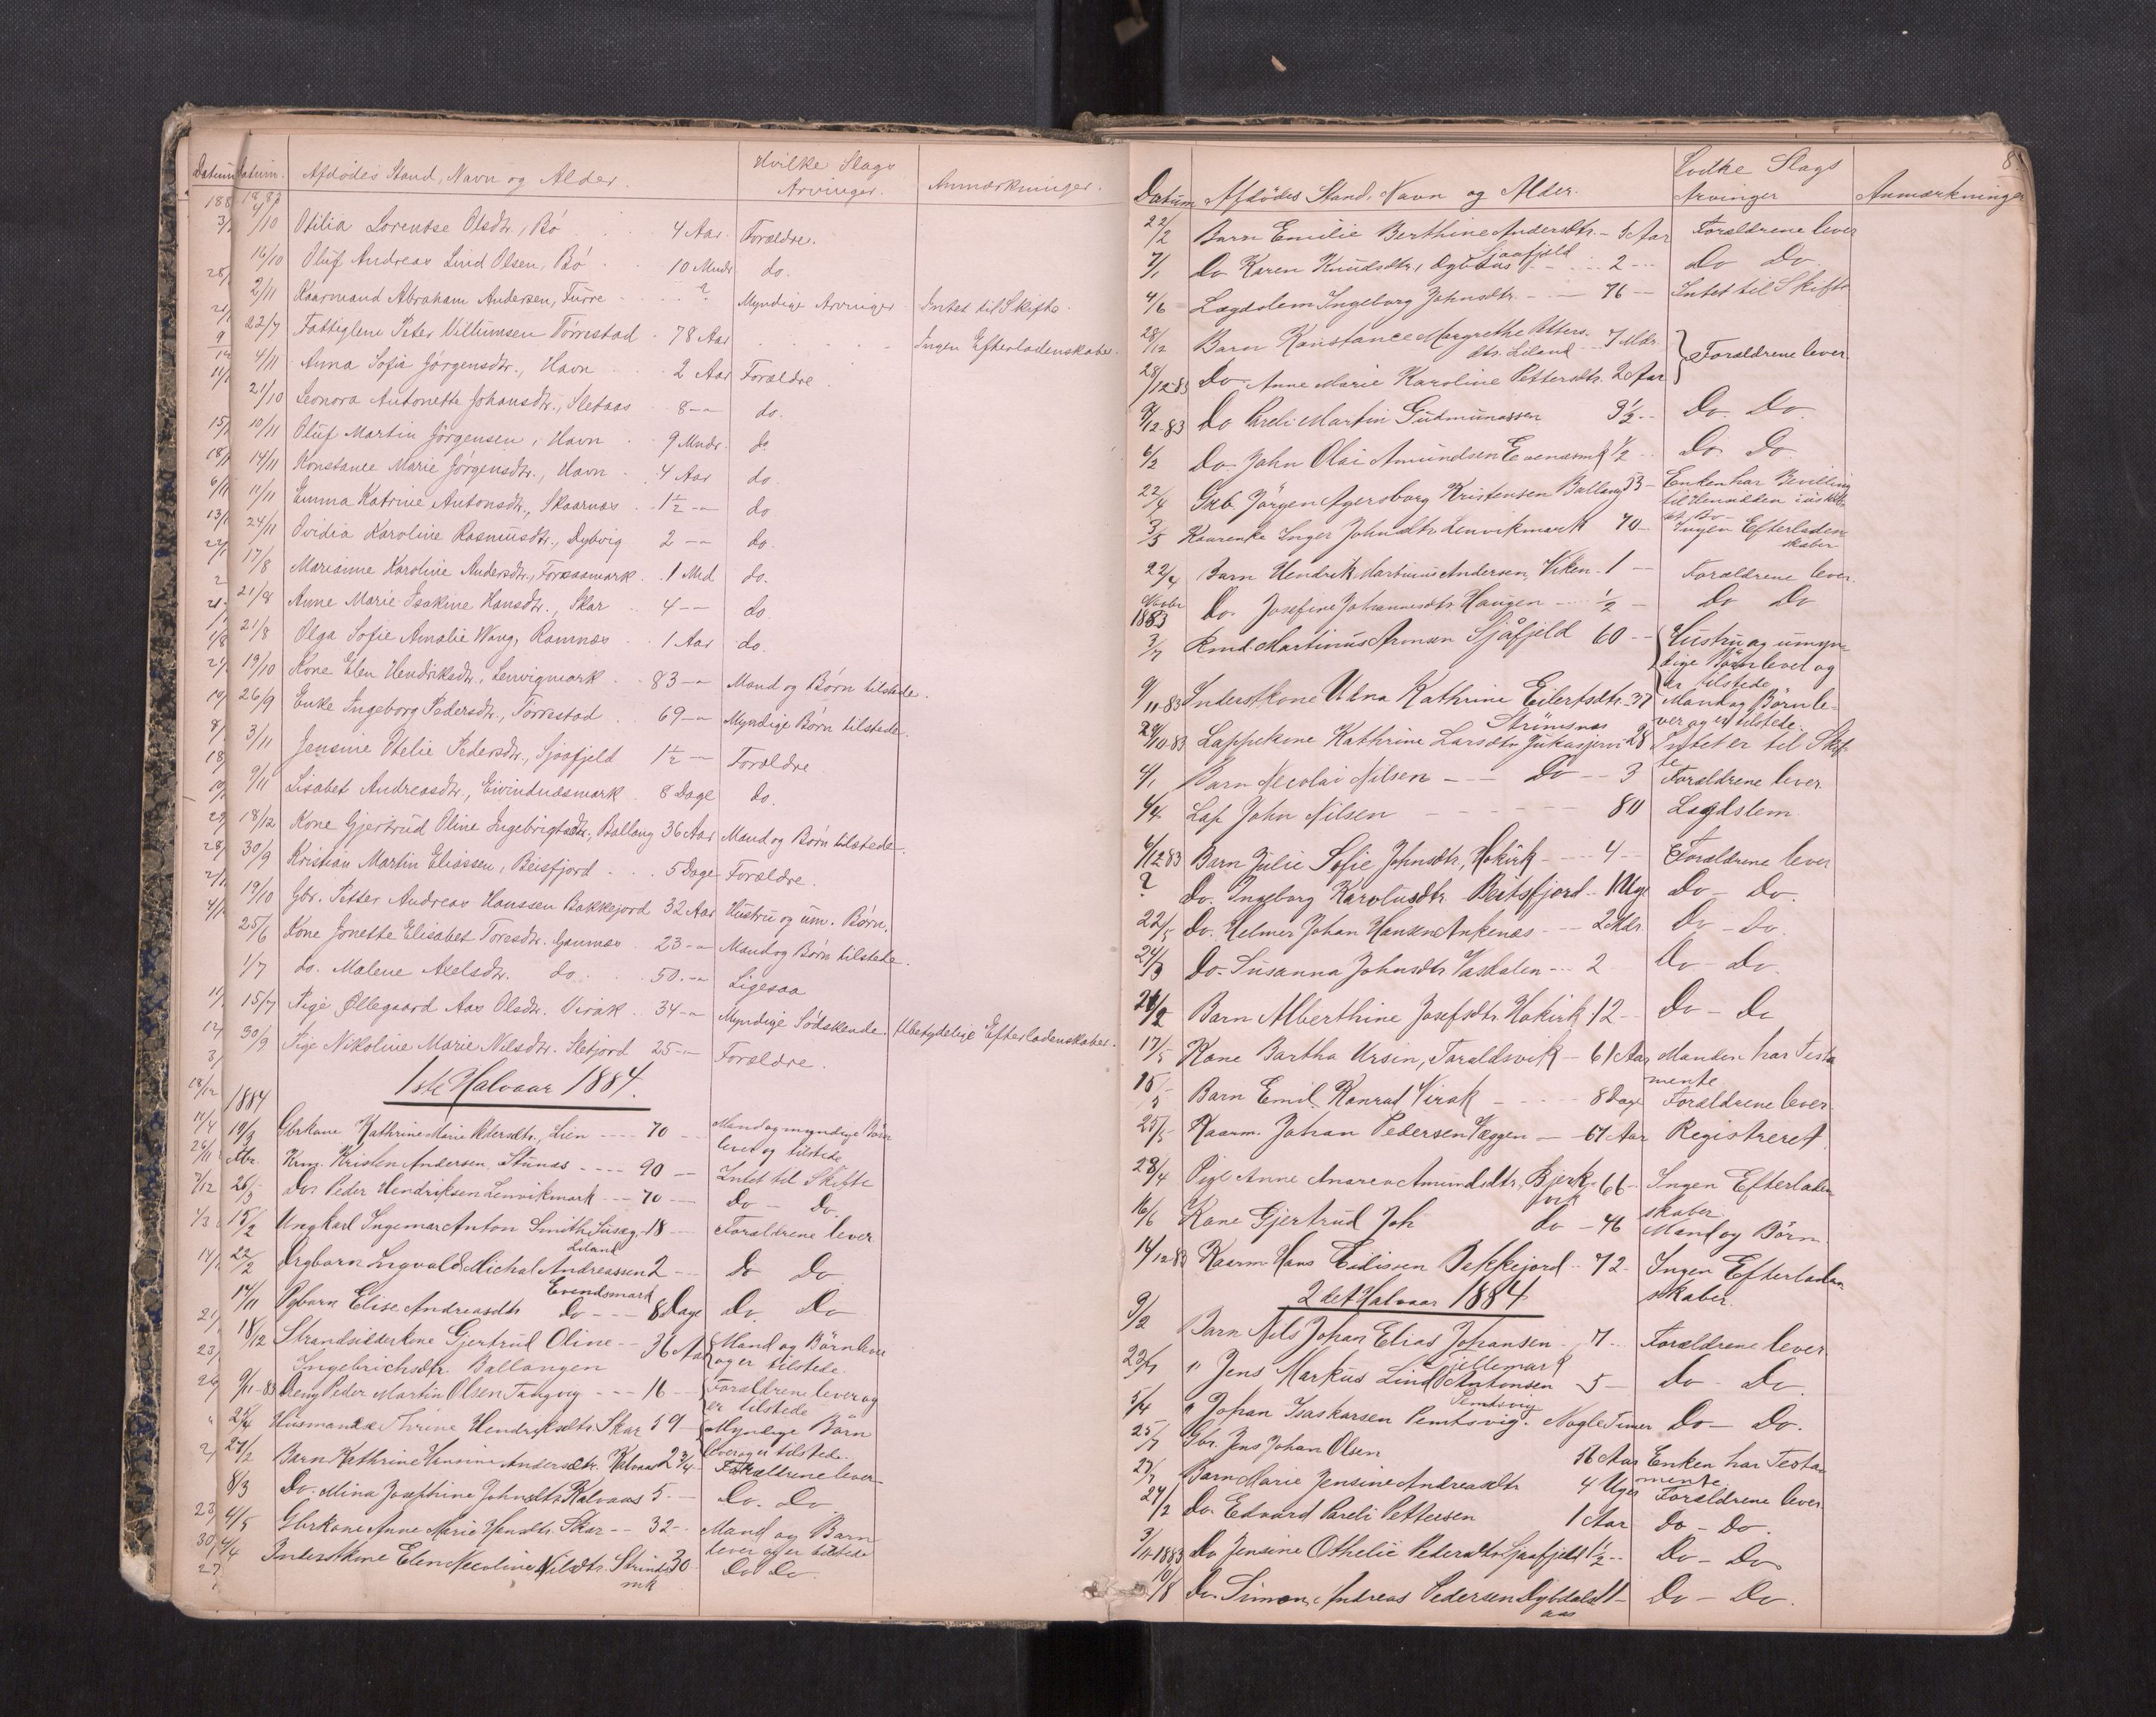 Datum Datum. Afdødes Stand, Navn og Alder. Hvilke Slags Arvinger. Anmærkninger.
1883
4/10 Otilia Lorentse Olsdtr., Bø 4 Aar. Forældre.
16/10 Oluf Andreas Lind Olsen, Bø 10 Mndr. do.
2/11 Kaarmand Abraham Andersen, Furre ? Myndige Arvinger Intet til Skifte.
22/7 Fattiglem Peter Villumsen Tørrestad 78 Aar Ingen Efterladenskaber.
4/11 Anna Sofia Jørgensdtr., Havn 2 Aar Forældre
21/10 Leonora Antonette Johansdtr., Sletaas 8 -"- do.
10/11 Oluf Martin Jørgensen, Havn 9 Mndr. do.
14/11 Konstance Marie Jørgensdtr., Havn 4 Aar do.
11/11 Emma Katrine Antonsdtr., Skarnes 1½ -"- do.
24/11 Ovidia Karoline Rasmusdtr., Dybvig 2 -"- do.
17/8 Marianne Karoline Andersdtr., Forsaamark 1 Md do.
21/8 Anne Marie Isakine Hansdtr., Skar 4 -- do
21/8 Olga Sofie Amalie Wang, Ramnæs 1 Aar do.
19/10 Kone Elen Hendriksdtr., Lenvigmark 83 -"- Mand og Børn tilstede.
26/9 Enke Ingeborg Pedersdtr., Tørrestad 69 -"- Myndige Børn tilstede.
3/11 Jensine Otelie Pedersdtr., Sjaafjeld 1½ -- Forældre
9/11 Lisabet Andreasdtr., Eivindnæsmark 8 Dage do.
18/12 Kone Gjertrud Oline Ingebrigtsdtr., Ballang 36 Aar Mand og Børn tilstede.
30/9 Kristian Martin Eliassen, Beisfjord 5 Dage Forældre.
19/10 Gbr. Petter Andreas Hanssen Bakkejord 32 Aar Hustru og um. Børn.
25/6 Kone Jonette Elisabet Toresdtr. Gaumes 23 -"- Mand og Børn tilstede.
1/7 do. Malene Axelsdtr. do. 50. -"- Ligesaa
15/7 Pige Øllegaard Aas Olsdtr. Virak 34 -"- Myndige Sødskende. Ubetydelige Efterladenskaber.
30/9 Pige Nikoline Marie Nilsdtr. Sletjord 25 -"- Forældre.
1ste Halvaar 1884.
1884
19/3 Gbrkone Kathrine Marie Petersdtr., Lien 70 Mand og myndige Børn
lever og tilstede
Krm. Kristen Andersen, Stunæs 90 Intet til Skifte
26/3 Do. Peder Hendriksen Lenvikmark 70 Do - Do.
15/2 Ungkarl Ingemar Anton Smith 18 Forældrene lever
Liland
22/2 Drgbarn Ingvald Michal Andreassen 2 Do Do
Evendsmark
14/11 Pgbarn Elise Andreasdtr Do 8 Dage Do. Do
18/12 Strandsidderkone Gjertrud Oline 36 Aar Mand og Børn lever
Ingebrichsdtr. Ballangen og er tilstede.
9/11-83 Dreng Peder Martin Olsen Tangvig 16 Forældrene lever og
er tilstede
25/4 Husmandsk Thrine Hendriksdtr Skar 59 Myndige Børn
lever og er tilstede.
27/2 Barn Kathrine Andersdtr. Kalvaas 2 3/4 Forældrene lever
8/3 Do. Mina Josephine Johnsdtr Kalvaas 5 Do. Do
4/5 Gbrkone Anne Marie Hansdtr. Skar 32 Mand og Barn
lever og er tilstede
4/4 Inderstkone Elen Necoline Nilsdtr. Strinds 30 Do Do.
mk
8.
Datum Afdødes Stand, Navn og Alder. Hvilke Slags Arvinger Anmærkninger
22/2 Barn Emilie Berthine Andersdtr. 5 Aar Forældrene lever
Sjaafjeld
7/1 Do Karen Knudsdtr, 2 Do Do.
4/6 Lægdslem Ingeborg Johnsdtr. 76 Intet til Skifte
28/12 Barn Konstance Margrethe Petters. 7 Mdr.
dtr. Liland Forældrene lever
28/12-83 Do Anne Marie Karoline Pettersdtr. 2 Aar
9/12-83 Do Pareli Martin Gudmundssen 3½ Do. Do.
6/2 Do John Olai Amundsen Evenesmk ½ Do Do
22/4 Grb. Jørgen Agersborg Kristensen Ballang 53 Enken har Bevilling
til Hensidden i uskiftet Bo
3/5 Kaarenke Inger Johnsdtr. Lenvikmark 70 Ingen Efterladenskaber
22/4 Barn Hendrik Martinus Andersen, Viken 1 Forældrene lever.
Novbr
1883 Do. Josefine Johannesdtr. Haugen ½ Do Do
3/7 Kmd. Martinus Arnsen Sjåfjeld 60 Hustru og umyn-
dige Børn lever og
er tilstede
9/11-83 Inderstkone Edna Kathrine Eilertsdtr. 37 Mand og Børn le-
Strømsnæs ver og er tilstede.
24/10-83 Lappekone Kathrine Larsdtr Jukasjervi 28 Intet er til Skif-
te
4/1 Barn Necolai Nilsen Do 3 Forældrene lever
4/4 Lap John Nilsen 80 Lægdslem.
6/12 83 Barn Julie Sofie Johnsdtr, Hokirk 4 Forældrene lever
? Do. Ingeborg Karolusdtr. Beitsfjord 1 Uge Do - Do.
22/5 Do. Helmer Johan Hansen Ankenæs 2 Mdr. Do - Do.
24/3 Do. Susanna Johnsdtr. Vaskalen 2 Do - Do.
21/2 Barn Alberthine Josefsdtr. Hokirk 12 Do - Do
17/5 Kone Bartha Ursin, Taraldsvik 61 Aar Manden har Testa
mente
15/5 Barn Emil Konrad Virak 8 Dage Forældrene lever.
25/5 Kaarm. Johan Pedersen Væggen 67 Aar Registreret
28/4 Pige Anne Anarea Amundsdtr. Bjerk 66 Ingen Efterladen
vik skaber
16/6 Kone Gjertrud Joh Do 46 Mand og Børn
14/12 83 Kaarm. Hans Eidissen Bekkejord 72 Ingen Efterladen
skaber.
2det Halvaar 1884
9/2 Barn Nils Johan Elias Johansen 7 Forældrene lever.
Fjellemark
23/7 " Jens Markus Lind Antonsen 5 Do - Do
Pemtsvig
5/4 " Johan Isaskarsen Pemtsvig. Nogle Timer Do - Do.
25/7 Gbr. Jens Johan Olsen 56 Aar Enken har Testa
mente
27/7 Barn Marie Jensine Andreasdtr 4 Uger Forældrene lever.
24/2 Do. Edvard Pareli Pettersen 1 Aar Do - Do.
3/11-1883 Do Jensine Othelie Pedersdtr Sjaafjeld 1½ Do - Do
10/8 Do. Simon Andreas Pedersen Dybdals 11 Do - Do.
aas